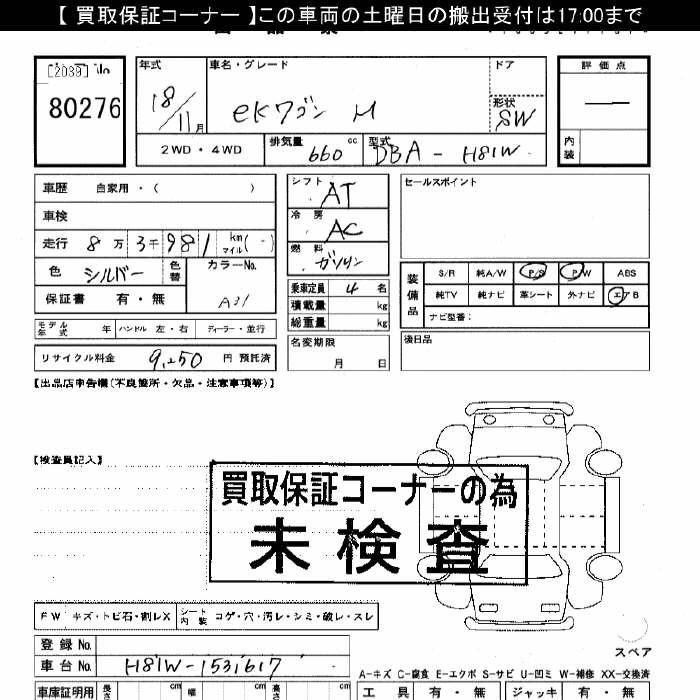 【 買取保証コーナー 】この車両の土曜日の搬出受付は17:00まで
[2089] No
80276
年式 18/11月
車名・グレード eKワゴン M
ドア
形状 SW
評価点 ―
内装
2WD・4WD
排気量 660 cc
型式 DBA - H81W
車歴 自家用・( )
車検
走行 8万3千981 km マイル(-)
色 シルバー 色替 カラーNo. A31
保証書 有・無
モデル年式 年 ハンドル 左・右 ディーラー・並行
リサイクル料金 9,250 円 預託済
シフト AT
冷房 AC
燃料 ガソリン
乗車定員 4 名
積載量 kg
総重量 kg
名変期限 月 日
セールスポイント
装備品
S/R 純A/W P/S P/W ABS
純TV 純ナビ 革シート 外ナビ エアB
ナビ型番:
後日品
【出品店申告欄(不良箇所・欠品・注意事項等)】
【検査員記入】
買取保証コーナーの為
未検査
FW キズ・トビ石・割レX シート内装 コゲ・穴・汚レ・シミ・破レ・スレ
登録No.
車台No. H81W-1531617
スペア
A-キズ C-腐食 E-エクボ S-サビ U-凹ミ W-補修 XX-交換済
車庫証明用 長さ cm 幅 cm 高さ cm
工具 有・無 ジャッキ 有・無